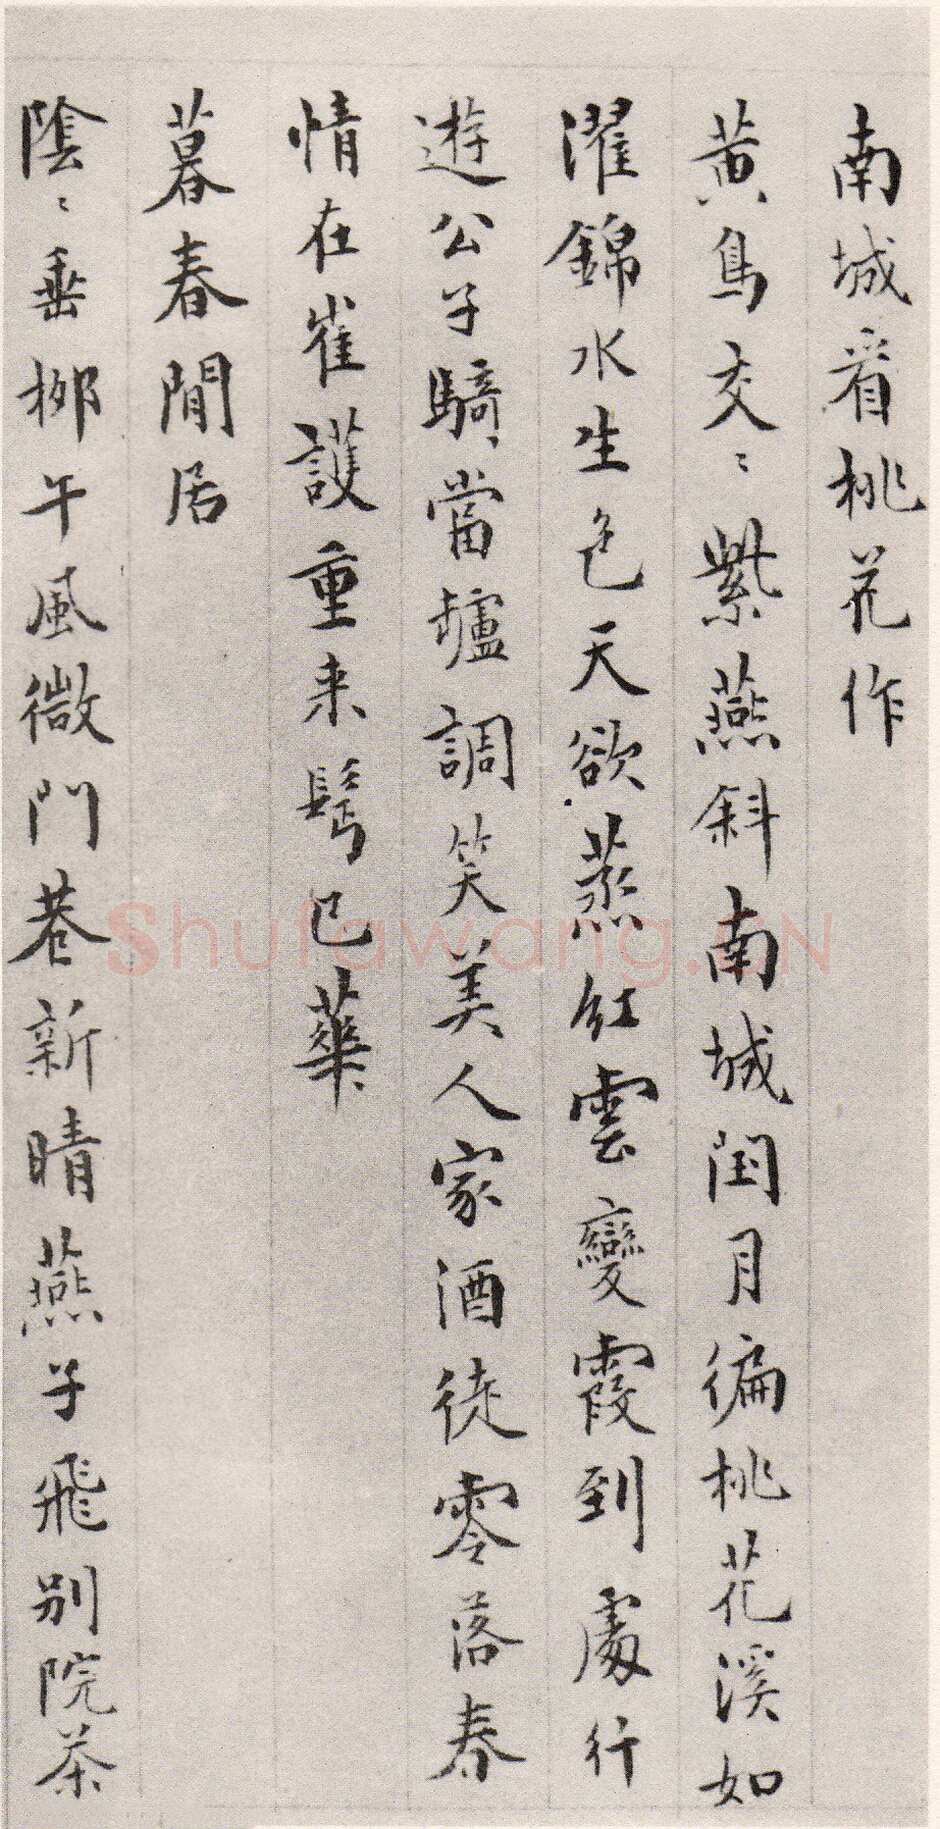 南城看桃花作
黄鳥交〻紫燕斜南城閏月徧桃花溪如
濯錦水生色天欲蒸紅雲變霞到處行
遊公子騎當壚調笑美人家酒徒零落春
情在崔護重来鬂已華
暮春閒居
陰〻垂栁午風微門巷新晴燕子飛别院茶
Shufawang.CN